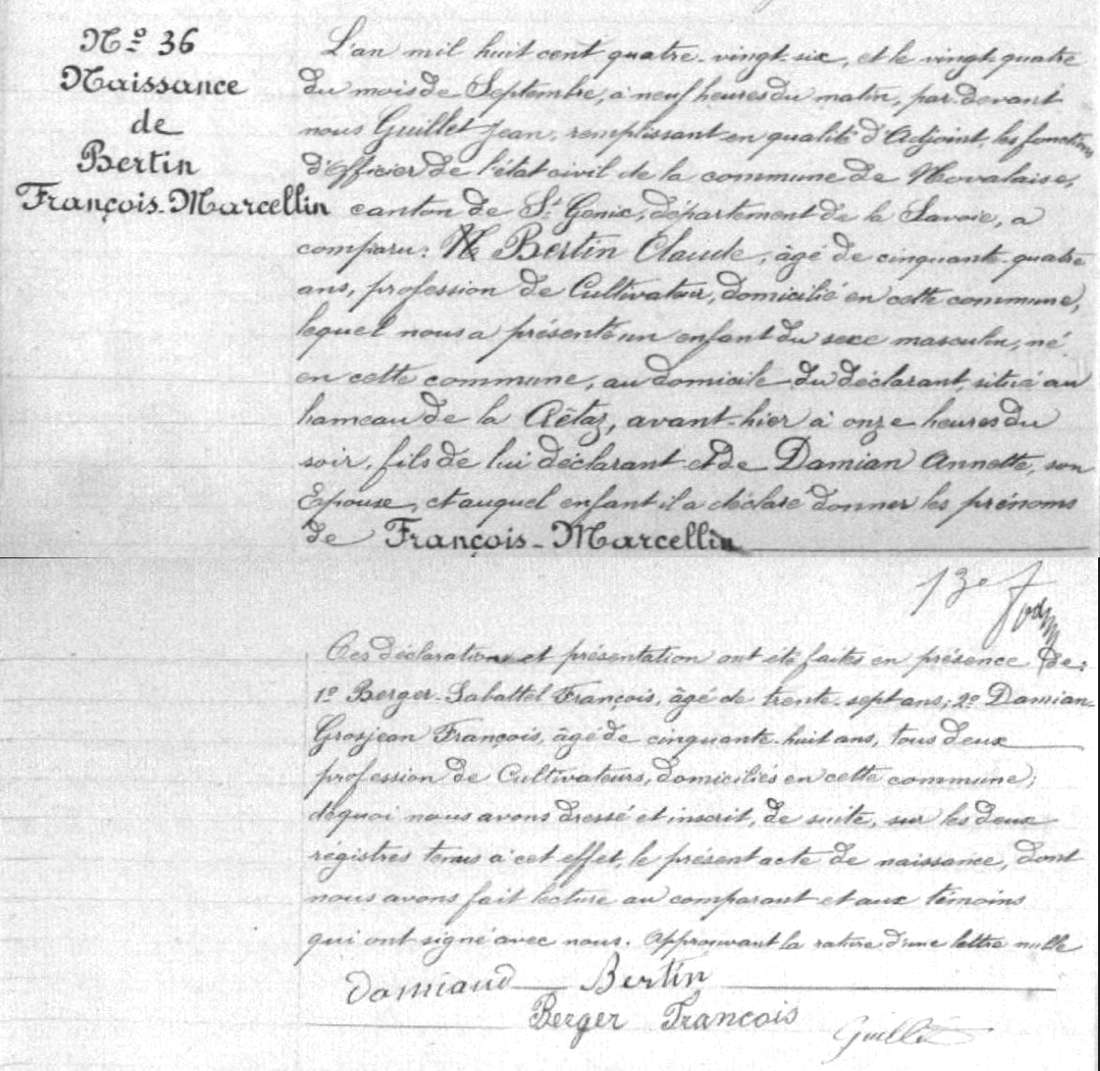 Nº 36
Naissance
de
Bertin
François-Marcellin
L'an mil huit cent quatre-vingt-six, et le vingt-quatre
du mois de Septembre, à neuf heures du matin, par-devant
nous Guillet Jean, remplissant en qualité d'Adjoint, les fonctions
d'Officier de l'état civil de la commune de Novalaise,
canton de St Genix, département de la Savoie, a
comparu: Bertin Claude, âgé de cinquante-quatre
ans, profession de Cultivateur, domicilié en cette commune,
lequel nous a présenté un enfant du sexe masculin, né
en cette commune, au domicile du déclarant, situé au
hameau de la , avant-hier à onze heures du
soir, fils de lui déclarant et de Damian Annette, son
Epouse, et auquel enfant il a déclaré donner les prénoms
de François-Marcellin
13e
Ces déclaration et présentation ont été faites en présence de:
1º Berger-Sabattel François, âgé de trente-sept ans; 2º Damian-
Grosjean François, âgé de cinquante-huit ans, tous deux
profession de Cultivateurs, domiciliés en cette commune;
dequoi nous avons dressé et inscrit, de suite, sur les deux
régistres tenus à cet effet, le présent acte de naissance, dont
nous avons fait lecture au comparant et aux témoins
qui ont signé avec nous. Approuvant la rature d'une lettre nulle
Damiand Bertin
Berger François
Guillet